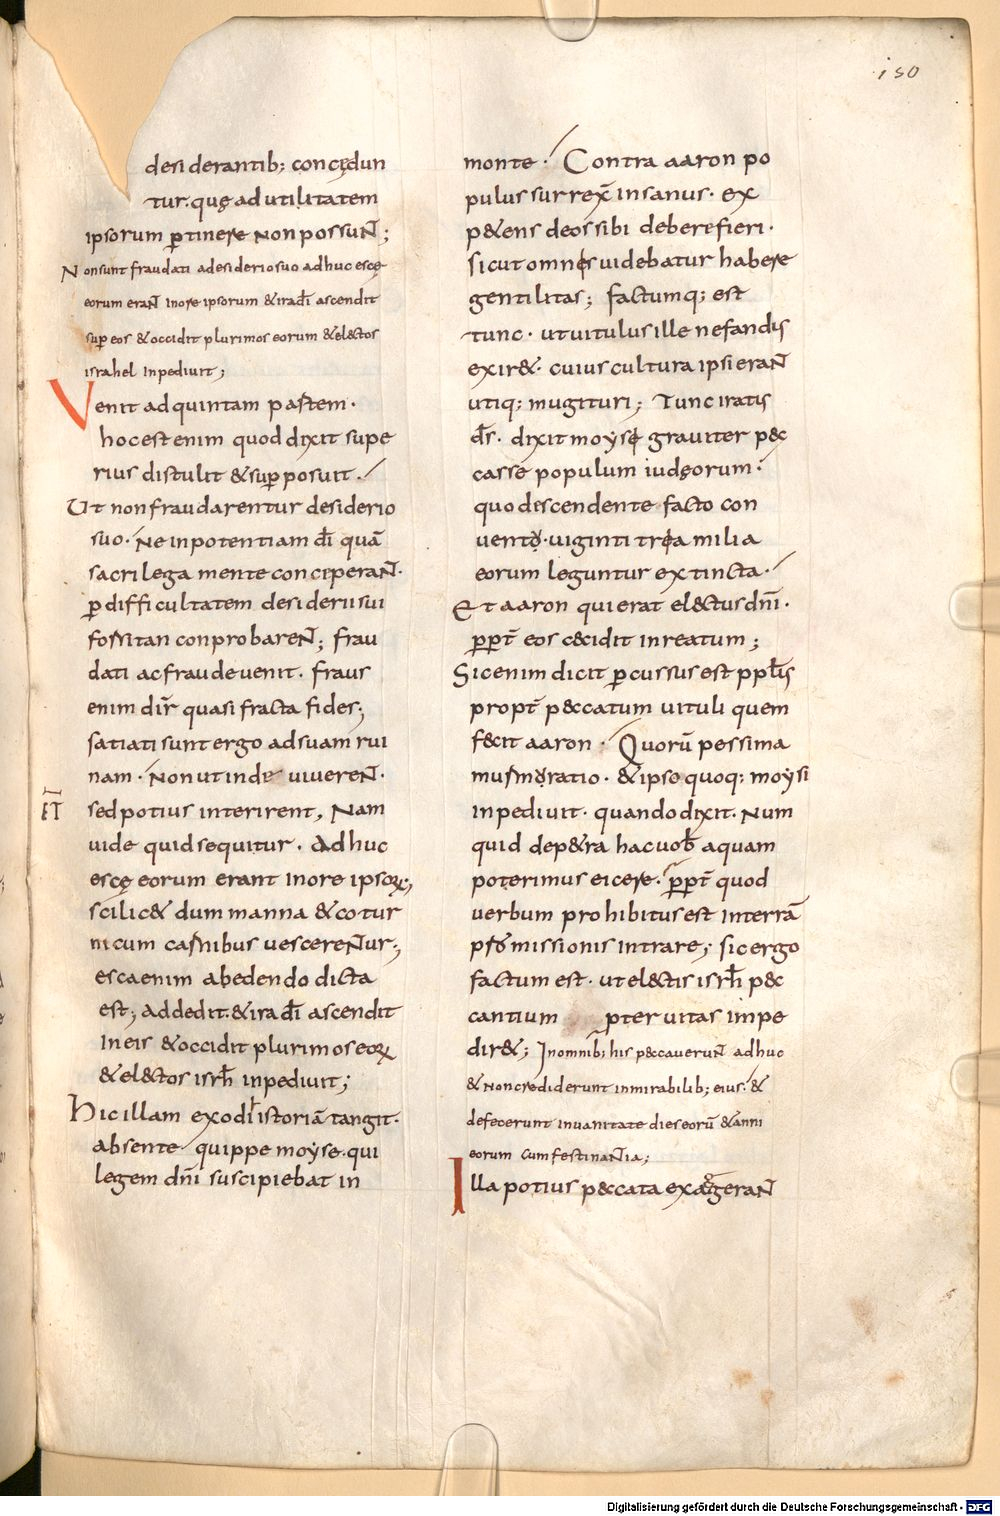 150
desiderantib; concędun
tur. quę ad utilitatem
ipsorum ꝑtinere non possuNt̄;
Non sunt fraudati a desiderio suo adhuc escę
eorum eraNt̄ in ore ipsorum & ira dī ascendit
suꝑ eos & occidit plurimos eorum & el&ctos
israhel inpediuit;
Venit ad quintam partem·
hoc est enim quod dixit supe
rius distulit & suꝑposuit·
Ut non fraudarentur desiderio
suo· Ne inpotentiam dī quā
sacrilega mente conciperaNt̄·
ꝑ difficultatem desiderii sui
forsitan conprobareNt̄; frau
dati ac fraude uenit· fraus
enim dir̄ quasi fracta fides;
satiati sunt ergo ad suam rui
nam· Non ut inde uiuereNt̄·
sed potius interirent, Nam
I
ET
uide quid sequitur· Adhuc
escę eorum erant in ore ipsoꝝ;
scilic& dum manna & cotur
nicum carnibus uescereNtur;
esca enim ab edendo dicta
est; addedit· & ira dī ascendit
in eis & occidit plurimos eoꝝ
& el&ctos isrħ inpediuit;
Hic illam exodi historiā tangit·
absente quippe moyse· qui
legem dn̄i suscipiebat in
monte· Contra aaron po
pulus surrex̄ insanus· ex
p&ens deos sibi debere fieri·
sicut omnes uidebatur habere
gentilitas; factumq; est
tunc· ut uitulus ille nefandis
exir&· cuius cultura ipsi eraNt̄
utiq; mugituri; Tunc iratis
d̄s· dixit moyse grauiter p&c
casse populum iudęorum·
quo discendente facto con
uento· uiginti trea milia
eorum leguntur extincta·
Et aaron qui erat el&ctus dn̄i·
ꝓpt̄ eos c&cidit in reatum;
Sic enim dicit ꝑcussus est ppl̄s
propt̄ p&ccatum uituli quem
fecit aaron· Quorū pessima
murmoratio· & ipse quoq; moysi
inpediuit· quando dixit· Num
quid de p&ra hac uob̄ aquam
poterimus eicere· ꝓpt̄ quod
uerbum prohibitus est in terrā
promissionis intrare; sic ergo
factum est· ut el&ctis isrħ p&c
cantium pteruitas impe
dir&; In omnib; his p&ccaueruNt̄ adhuc
& non crediderunt in mirabilib; eius· &
defecerunt in uanitate dies eorū & anni
eorum cum festinaNtia;
Illa potius p&ccata exaggeraNt̄
Digitalisierung gefördert durch die Deutsche Forschungsgemeinschaft - DFG